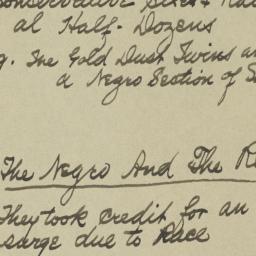 al Half-Dozens
g. The Gold Dust Twins an
a Negro Section of
The Negro And The R
They took credit for an
surge due to Race